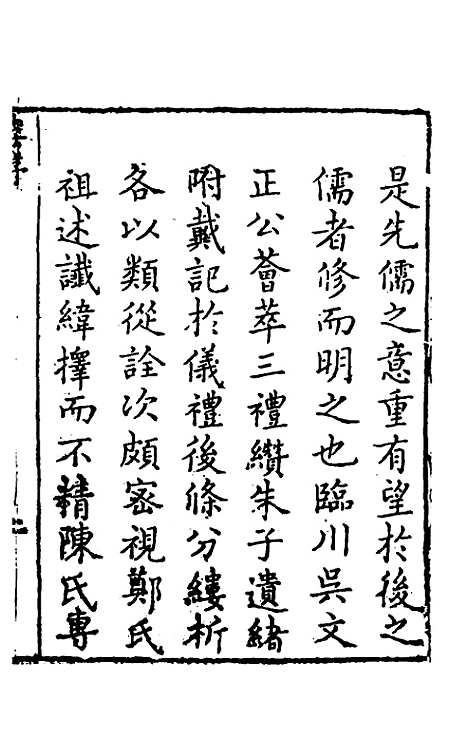 是先儒之意重有望於後之
儒者修而明之也臨川吳文
正公薈萃三禮纘朱子遺緒
附戴記於儀禮後條分縷析
各以類從詮次頗密視鄭氏
祖述讖緯擇而不精陳氏專